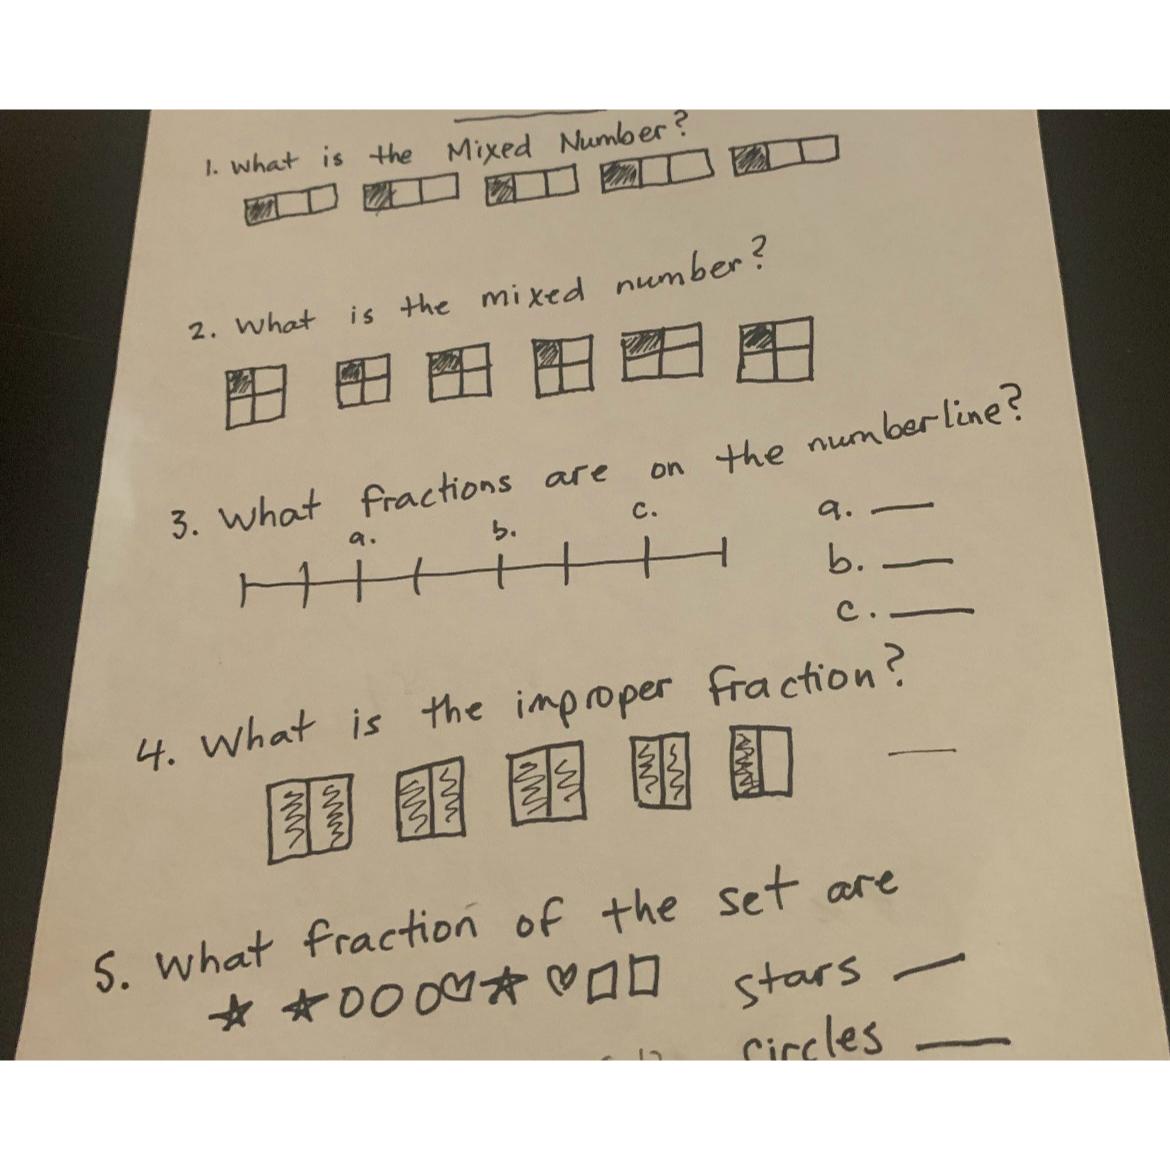 1. What is the Mixed Number?
2. What is the mixed number?
3. What fractions are on the numberline?
a. b. c.
a.
b.
c.
4. What is the improper fraction?
5. What fraction of the set are
stars
circles